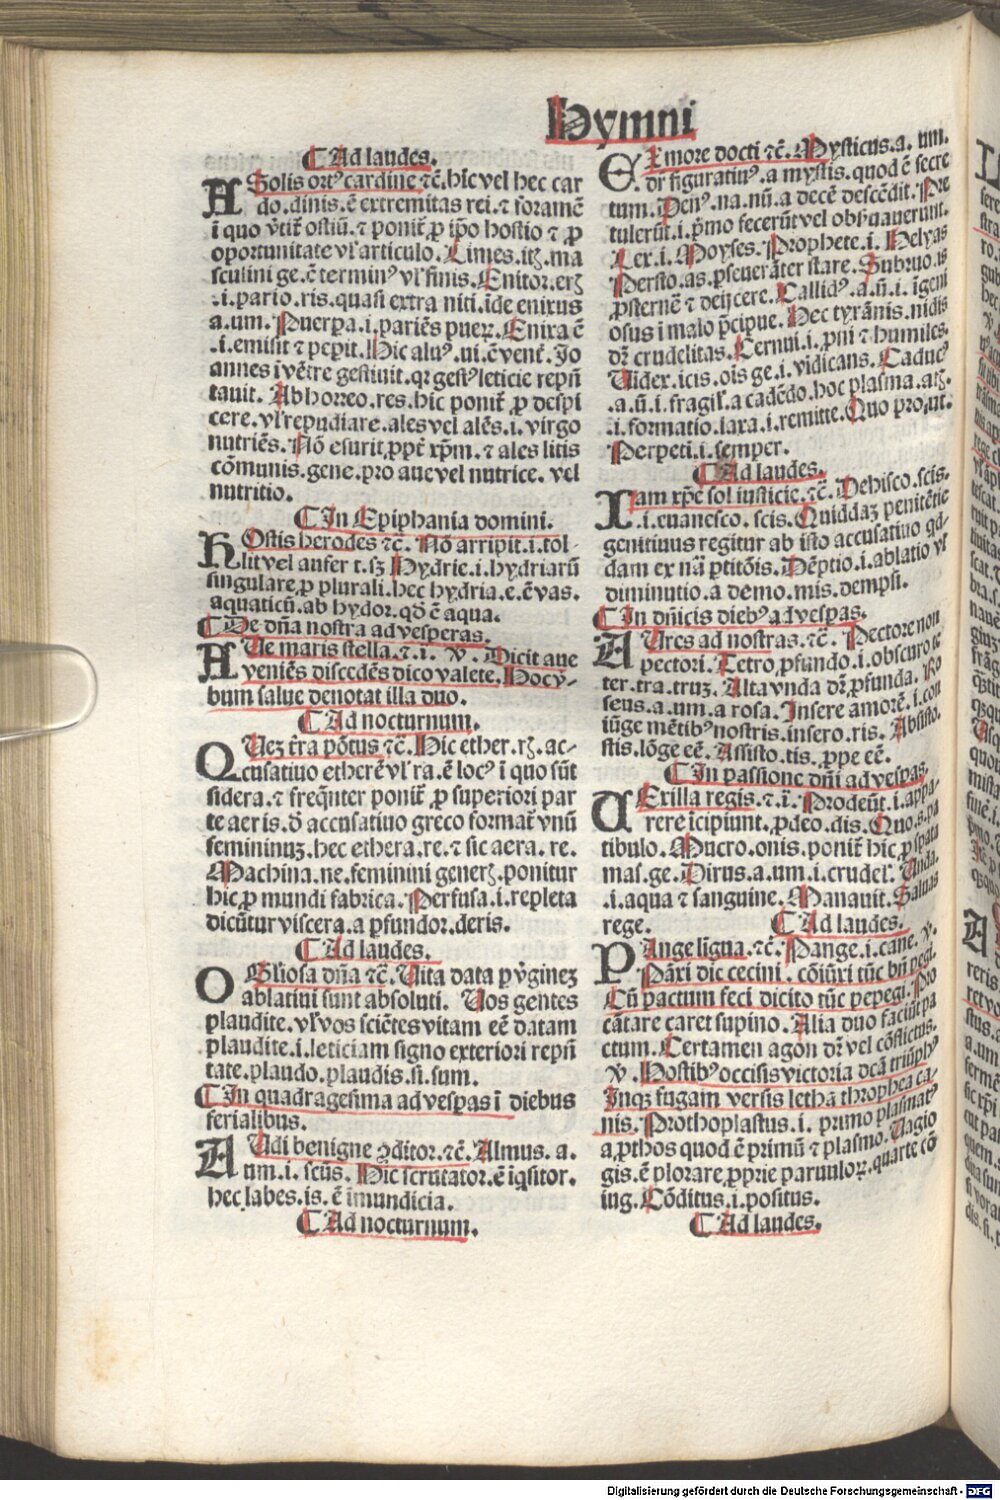 Hymni
¶ Ad laudes.
A Solis ortꝰ cardine ⁊c̄. hic vel hec car
do .dinis. ē extremitas rei. ⁊ foramē
ī quo v̄titr̄ ostiū. ⁊ ponit̄ ꝓ ip̄o hostio ⁊ ꝓ
oportunitate vl̓ articulo. Limes .itꝫ. ma
sculini ge. ē terminꝰ vl̓ finis. Enitor .erꝫ
.i. pario .ris. quasi extra niti. īde enixus
a. um. Puerpa .i. pariēs pueꝝ. Enixa ē
.i. emisit ⁊ peꝑit. Hic aluꝰ .ui. ē vent̄. Jo
annes ī vētre gestiuit. qꝛ gestꝰ leticie rep̄n
tauit. Abhorreo .res. hic ponit̄ ꝓ despi
cere. vl̓ repudiare. ales vel alēs .i. virgo
nutriēs. Nō esurit. ꝓpt̄ xp̄m. ⁊ ales litis
cōmunis. gene. pro aue vel nutrice. vel
nutritio.
¶ In Epiphania domini.
HOstis herodes ⁊c̄. Nō arripit .i. tol-
lit vel aufer t. sꝫ Hydrie .i. hydriarū
singulare. ꝓ plurali. hec hydria .e. ē vas.
aquaticū. ab hydor. qd̄ ē aqua.
¶ De dn̄a nostra ad vesperas.
AUe maris stella. ⁊. i. v̇. Dicit aue
veniēs discedēs dico valete. Hoc ÿ-
bum salue denotat illa duo.
¶ Ad nocturnum.
QUez t̄ra pōtus ⁊c̄. Hic ether .rꝫ. ac-
cusatiuo etherē vl̓ ra. ē locꝰ ī quo sūt
sidera. ⁊ freq̄nter ponit̄ ꝓ superiori par
te aeris. d̄ accusatiuo greco format̄ vnū
femininuꝫ. hec ethera .re. ⁊ sic aera. re.
Machina .ne. feminini generꝫ. ponitur
hic ꝓ mundi fabrica. Perfusa .i. repleta
dicūtur viscera. a ꝓfundor. deris.
¶ Ad laudes.
O Gl̓iosa dn̄a ⁊c̄. Uita data p v̓gineꝫ
ablatiui sunt absoluti. Uos gentes
plaudite. vl̓ vos sciētes vitam eē datam
plaudite .i. leticiam signo exteriori rep̄n
tate. plaudo. plaudis. si. sum.
¶ In quadragesima ad vesꝑas ī diebus
ferialibus.
AUdi benigne ꝯditor. ⁊c̄. Almus. a.
um .i. scūs. Hic scrutator. ē iq̄sitor.
hec labes .is. ē īmundicia.
¶ Ad nocturnum.
EX more docti ⁊c̄. Mysticus .a. um.
dr̄ figuratiuꝰ. a mystis. quod ē secre
tum. Denꝰ .na. nū. a decē descēdit. Pre
tulerūt .i. p̄mo fecerūt vel obſ̓uauerunt.
Lex .i. Moyses. Prophete .i. Helyas
Persto .as. ꝑseueranter stare. Subruo .is
ꝓsternē ⁊ deijcere. Callidꝰ .a. ū. i. īgeni
osus ī malo p̄cipue. Hec tyrānis .nidis
dr̄ crudelitas. Cernui .i. ꝓni ⁊ humiles.
Uidex .icis. oīs ge. i. vidicans. Caducꝰ
.a. ū. i. fragil̓. a cadēdo. hoc plasma .atꝫ.
.i. formatio. laxa .i. remitte. Quo pro. ut.
Perpeti .i. semper.
¶ Ad laudes.
IAm xp̄e sol iusticie. ⁊c̄. Dehisco .scis.
.i. euanesco .scis. Quiddaꝫ penitētie
genitiuus regitur ab isto accusatiuo qd-
dam ex nā ꝑtitōis. Dēptio .i. ablatio vl̓
diminutio. a demo. mis. dempsi.
¶ In dn̄icis diebꝰ ad vesꝑas.
AUres ad nostras. ⁊c̄. Pectore non
pectori. Tetro. ꝓfundo .i. obscuro te
ter. tra. truꝫ. Alta vnda dr̄. ꝓfunda. Ro
seus. a. um. a rosa. Insere amorē. i. con
iūge mētibꝰ nostris. insero .ris. Absisto.
stis. lōge eē. Assisto .tis. ꝓpe eē.
¶ In passione dn̄i ad vesꝑas.
UExilla regis. ⁊. ī. Prodeūt .i. appa-
rere īcipiunt. ꝓdeo .dis. Quo .s. pa
tibulo. Mucro .onis. ponit̄ hic ꝓ spata
mas. ge. Dirus .a. um. i. crudel̓. Unda.
.i. aqua ⁊ sanguine. Manauit. Saluas
rege.
¶ Ad laudes.
PAnge ligua. ⁊c̄. Pange .i. cane. v̇.
Pāxi dic cecini. cōiūxi tūc bn̄ pegi.
Cū pactum feci dicito tūc pepegi. Pro
cātare caret supino. Alia duo faciūt pa
ctum. Certamen agon dr̄ vel cōflictus.
v̇. Hostibꝰ occisis victoria dcā triūphꝰ
Inqꝫ fugam versis letha throphea ca-
nis. Prothoplastus .i. primo plasmatꝰ
a. ꝓthos quod ē primū ⁊ plasmo. Uagio
gis. ē plorare. ꝓprie paruuloꝝ. quarte cō
iug. Cōditus .i. positus.
¶ Ad laudes.
Digitalisierung gefördert durch die Deutsche Forschungsgemeinschaft - DFG